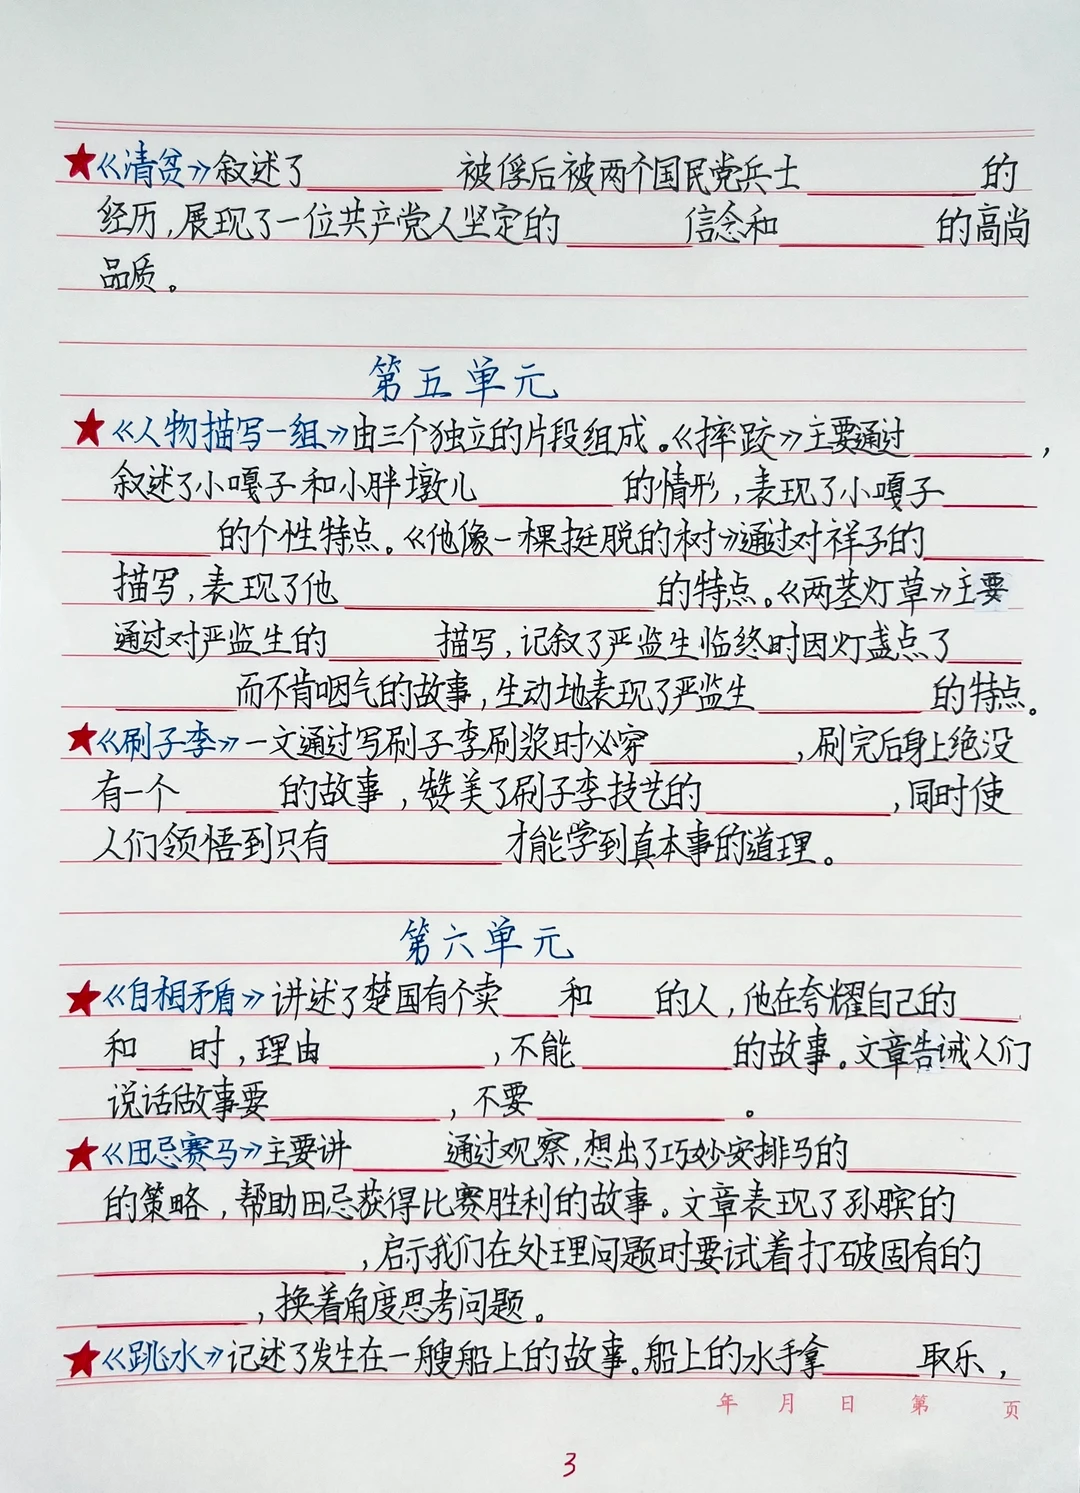 ★《清贫》叙述了________被俘后被两个国民党兵士________的
经历,展现了一位共产党人坚定的________信念和________的高尚
品质。
第五单元
★《人物描写一组》由三个独立的片段组成。《摔跤》主要通过________,
叙述了小嘎子和小胖墩儿________的情形,表现了小嘎子________
________的个性特点。《他像一棵挺脱的树》通过对祥子的________
描写,表现了他________的特点。《两茎灯草》主要
通过对严监生的________描写,记叙了严监生临终时因灯盏点了________
________而不肯咽气的故事,生动地表现了严监生________的特点。
★《刷子李》一文通过写刷子李刷浆时必穿________,刷完后身上绝没
有一个________的故事,赞美了刷子李技艺的________,同时使
人们领悟到只有________才能学到真本事的道理。
第六单元
★《自相矛盾》讲述了楚国有个卖____和____的人,他在夸耀自己的____
和____时,理由________,不能________的故事。文章告诫人们
说话做事要________,不要________。
★《田忌赛马》主要讲________通过观察,想出了巧妙安排马的________
的策略,帮助田忌获得比赛胜利的故事。文章表现了孙膑的
________,启示我们在处理问题时要试着打破固有的
________,换着角度思考问题。
★《跳水》记述了发生在一艘船上的故事。船上的水手拿________取乐,
年 月 日 第 页
3